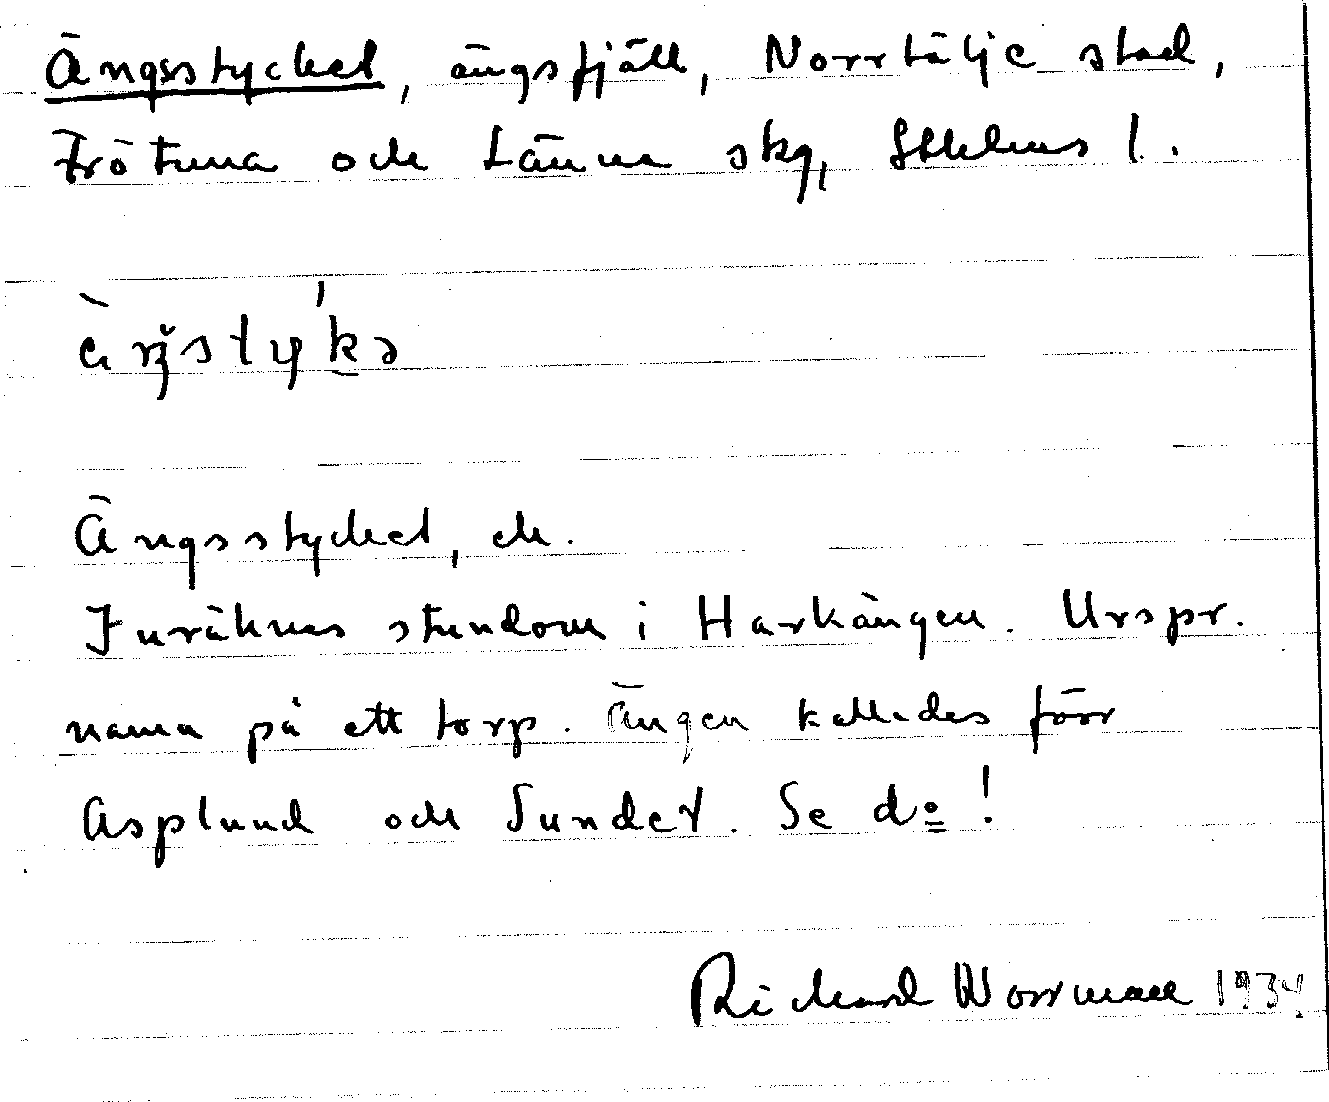 Ängsstycket, ängsfjäll, Norrtälje stad,
Frötuna och Länna skg, Sthlms l.
Ängsstycket, ek.
Inräknas stundom i Harkängen. Urspr.
namn på ett torp. Ängen kallades förr
Asplund och Sundet. Se do!
Richard Norrman 1934